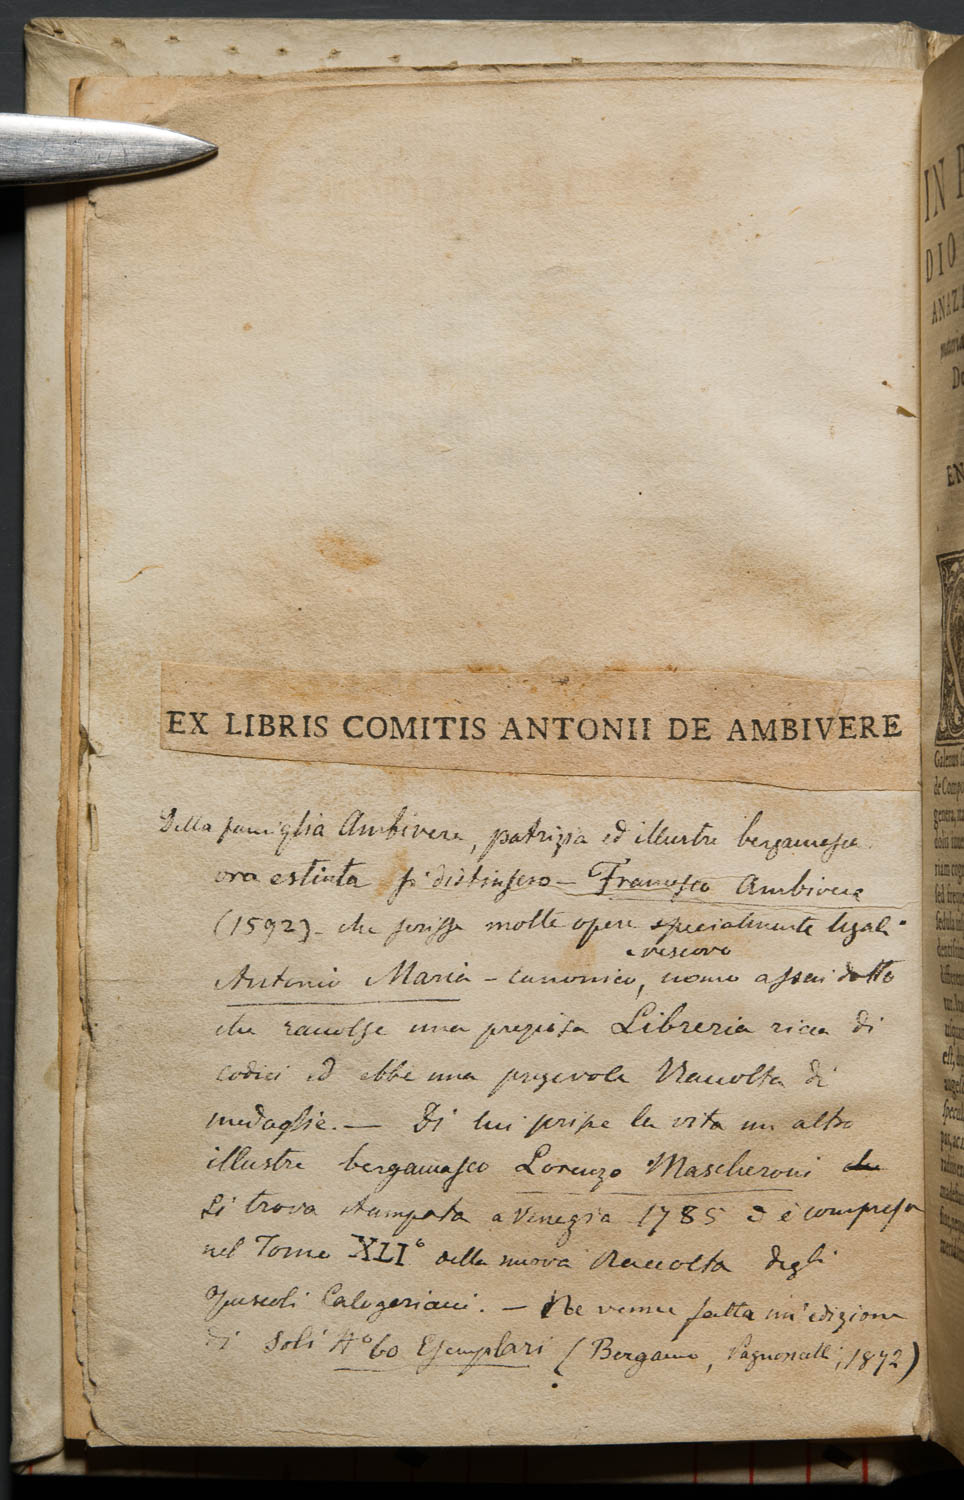 EX LIBRIS COMITIS ANTONII DE AMBIVERE
Della famiglia Ambivere, patrizia ed illustre bergamasca
ora estinta si distinsero — Francesco Ambivere
(1592) - che scrisse molte opere specialmente legali -
vescovo
Antonio Maria - canonico, uomo assai dotto
che raccolse una preziosa Libreria ricca di
codici ed ebbe una pregevole Raccolta di
medaglie. — Di lui scrisse la vita un altro
illustre bergamasco Lorenzo Mascheroni che
Si trova stampata a Venezia 1785 ed è compresa
nel Tomo XLI° della nuova Raccolta degli
Opuscoli Calogeriani. — Ne venne fatta un'edizione
di soli N° 60 Esemplari (Bergamo, Pagnoncelli, 1872)
IN
DIO
ANAZ
De
EN
Galenus
de Compo